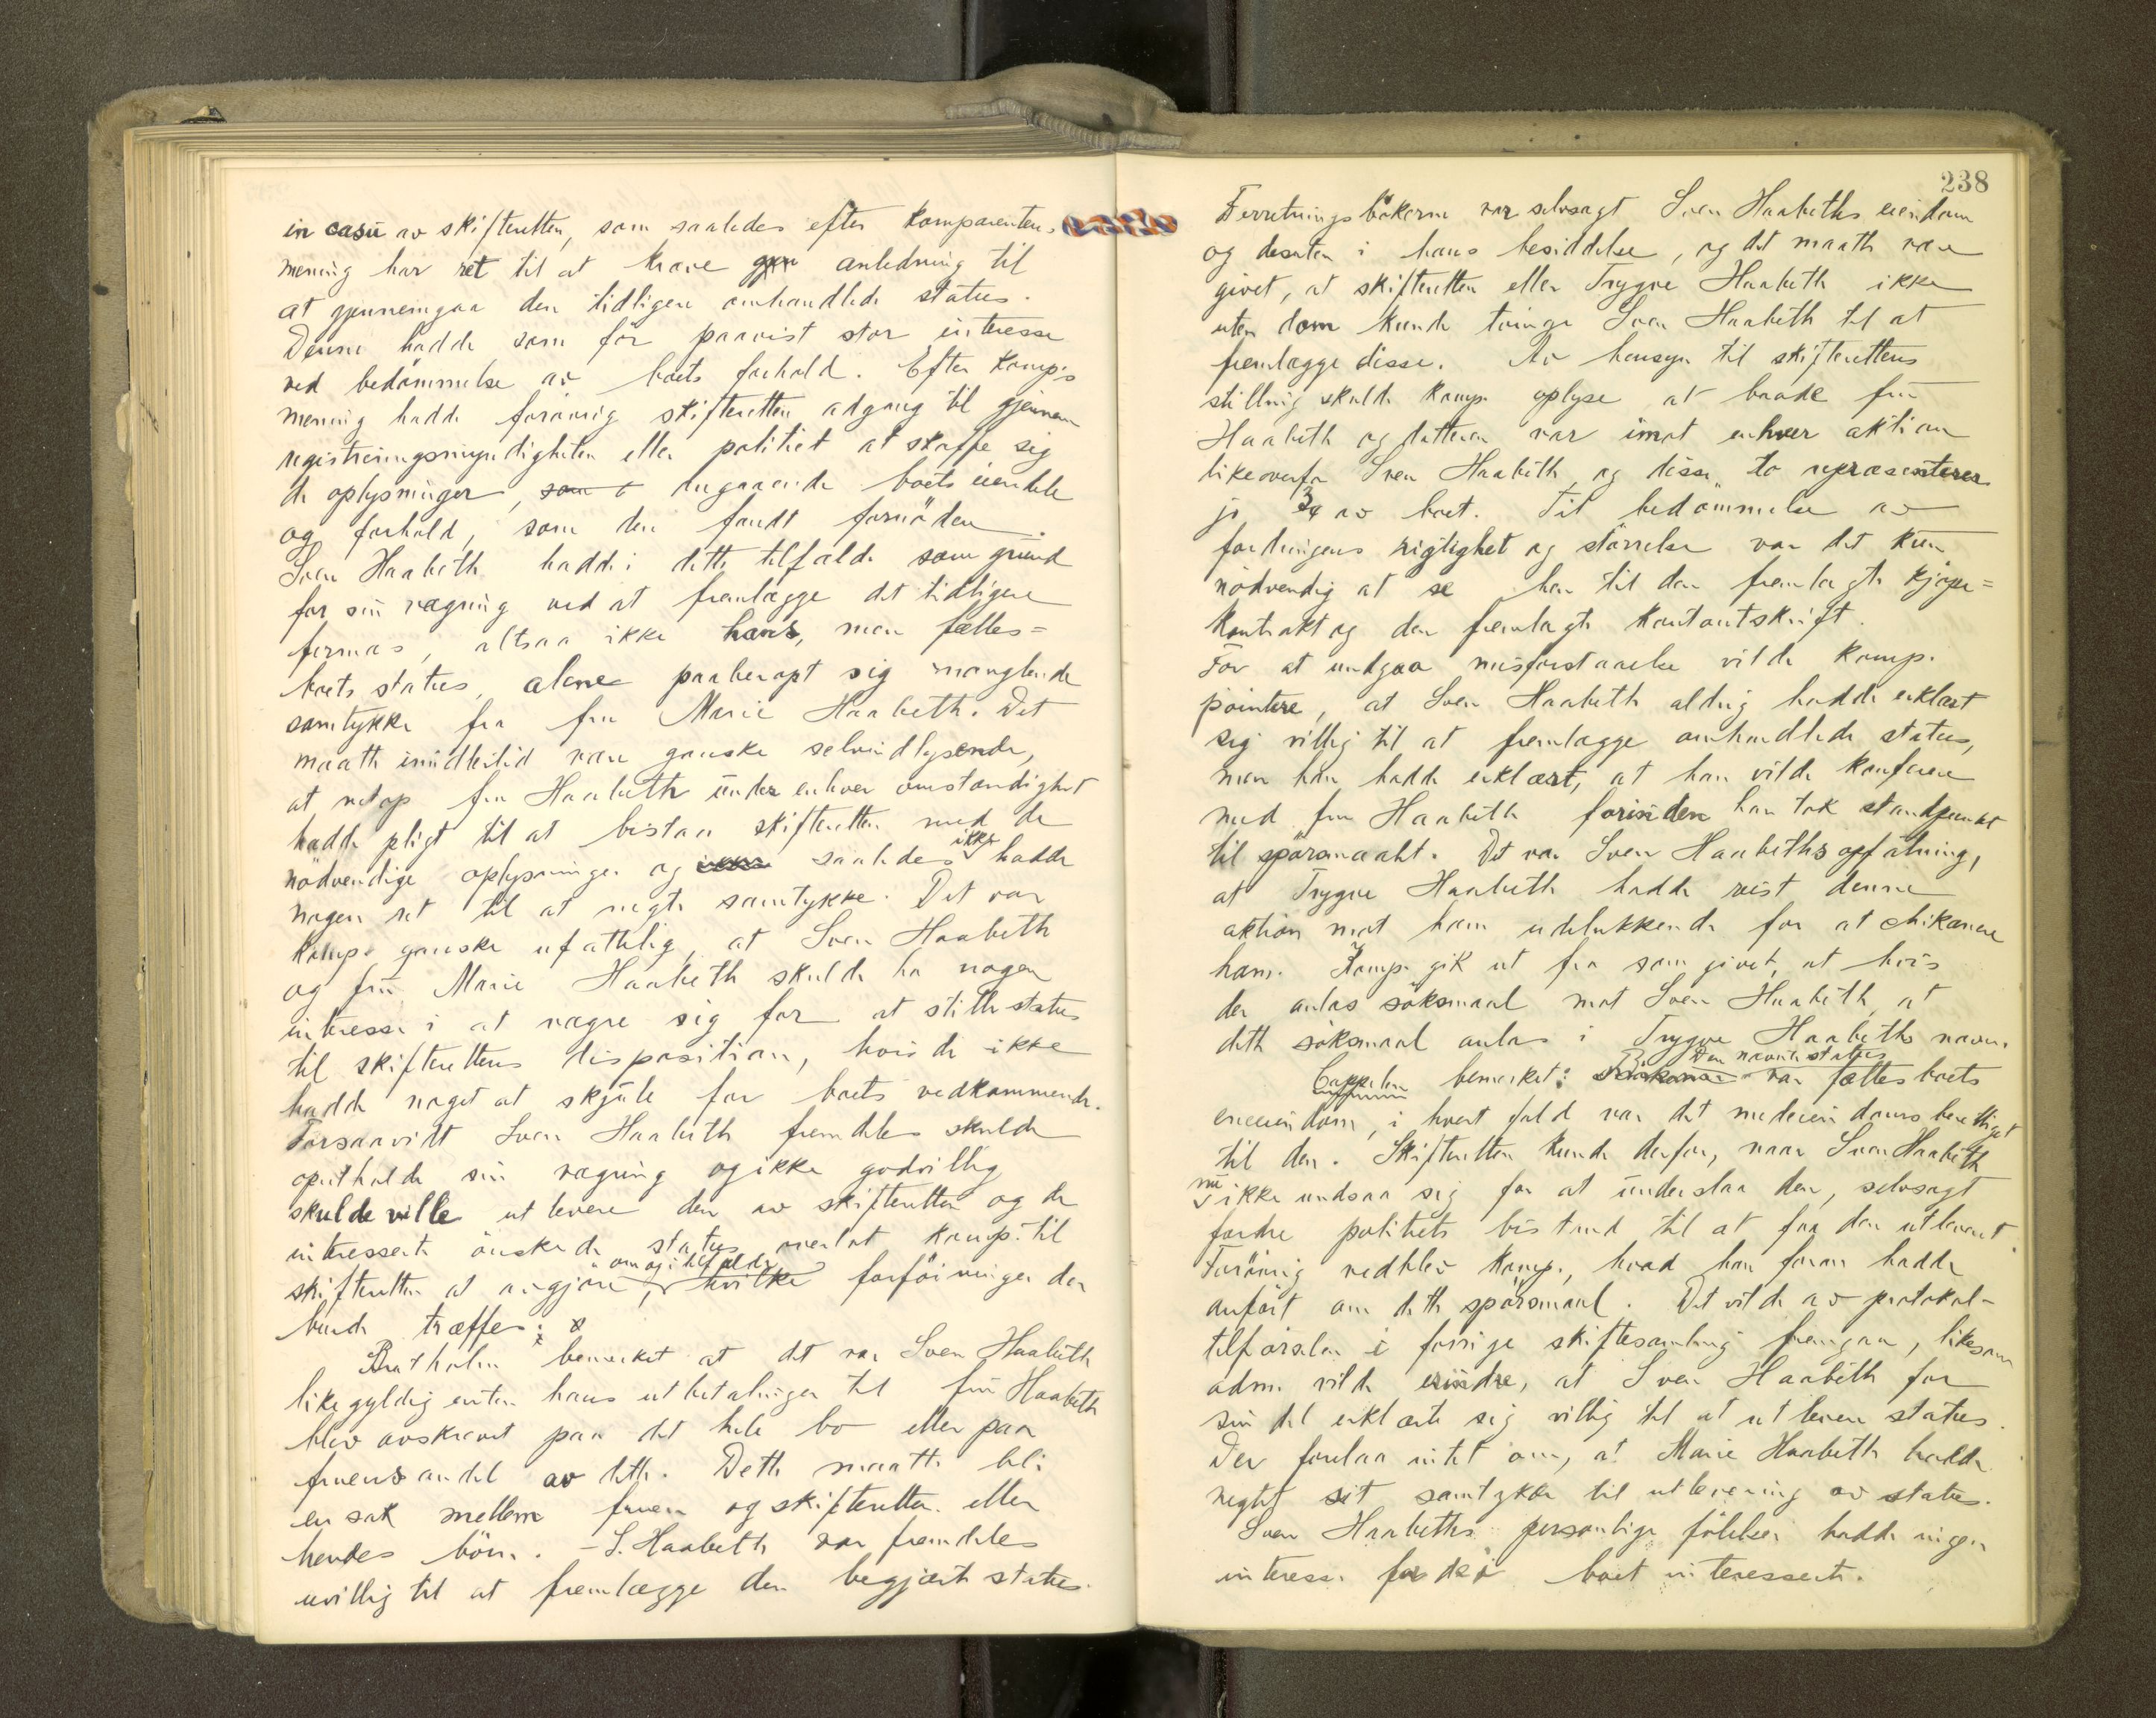 in casu av skifteretten, som saaledes efter komparentens
mening har ret til at kræve gjen anledning til
at gjennemgaa den tidligere omhandlede status.
Denne hadde som før paavist stor interesse
ved bedømmelse av boets forhold. Efter komp's
mening hadde forøvrig skifteretten adgang til gjennem
registreringsmyndigheten eller politiet at skaffe sig
de oplysninger, som angaaende boets eiendele
og forhold, som den fandt fornøden.
Sven Haabeth hadde i dette tilfælde som grund
for sin vægring ved at fremlægge det tidligere
firmas, altsaa ikke hans, men fælles=
boets status, alene paaberopt sig manglende
samtykke fra fru Marie Haabeth. Det
maatte imidlertid være ganske selvindlysende,
at netop fru Haabeth under enhver omstændighet
hadde pligt til at bistaa skifteretten med de
nødvendige oplysninger og saaledes ikke hadde
nogen ret til at negte samtykke. Det var
komp. ganske ufattelig, at Sven Haabeth
og fru Marie Haabeth skulde ha nogen
interesse i at vægre sig for at stille status
til skifterettens disposition, hvis de ikke
hadde noget at skjule for boets vedkommende.
Forsaavidt Sven Haabeth fremdeles skulde
opretholde sin vægring og ikke godvillig
skulde ville utlevere den av skifteretten og de
interesserte ønskede status overlot komp. til
skifteretten at avgjøre, om og i tilfælde hvilke forføininger den
burde træffe.
Bratholm bemerket at det var Sven Haabeth
likegyldig enten hans utbetalinger til fru Haabeth
blev avskrevet paa det hele bo eller paa
fruens andel av dette. Dette maatte bli
en sak mellem fruen og skifteretten eller
hendes børn. - S. Haabeth var fremdeles
uvillig til at fremlægge den begjærte status.
238
Forretningsbøkerne var selvsagt Sven Haabeths eiendom
og desuten i hans besiddelse, og det maatte være
givet, at skifteretten eller Trygve Haabeth ikke
uten dom kunde tvinge Sven Haabeth til at
fremlægge disse. Av hensyn til skifterettens
stilling skulde komp. oplyse at baade fru
Haabeth og datteren var imot enhver aktion
likeoverfor Sven Haabeth, og disse to repræsenterer
jo 3/4 av boet. Til bedømmelse av
fordringens rigtighet og størrelse var det kun
nødvendig at se hen til den fremlagte kjøpe=
kontrakt og den fremlagte kontoutskrift.
For at undgaa misforstaaelse vilde komp.
pointere, at Sven Haabeth aldrig hadde erklært
sig villig til at fremlægge omhandlede status,
men han hadde erklært, at han vilde konferere
med fru Haabeth forinden han tok standpunkt
til spørsmaalet. Det var Sven Haabeths opfatning,
at Trygve Haabeth hadde reist denne
aktion mot ham udelukkende for at chikanere
ham. Komp. gik ut fra som givet, at hvis
der anlas søksmaal mot Sven Haabeth, at
dette søksmaal anlas i Trygve Haabeths navn.
Cappelen bemerket: Den nævnte status var fællesboets
eneeiendom, i hvert fald var det medeiendomsberettiget
til den. Skifteretten kunde derfor, naar Sven Haabeth
nu ikke undsaa sig for at underslaa den, selvsagt
fordre politiets bistand til at faa den utlevert.
Forøvrig vedblev komp., hvad han foran hadde
anført om dette spørsmaal. Det vilde av protokol-
tilførselen i forrige skiftesamling fremgaa, likesom
adm. vilde erindre, at Sven Haabeth for
sin del erklærte sig villig til at utlevere status.
Der forelaa intet om, at Marie Haabeth hadde
negtet sit samtykke til utlevering av status.
Sven Haabeths personlige følelser hadde ingen
interesse for de i boet interesserte.